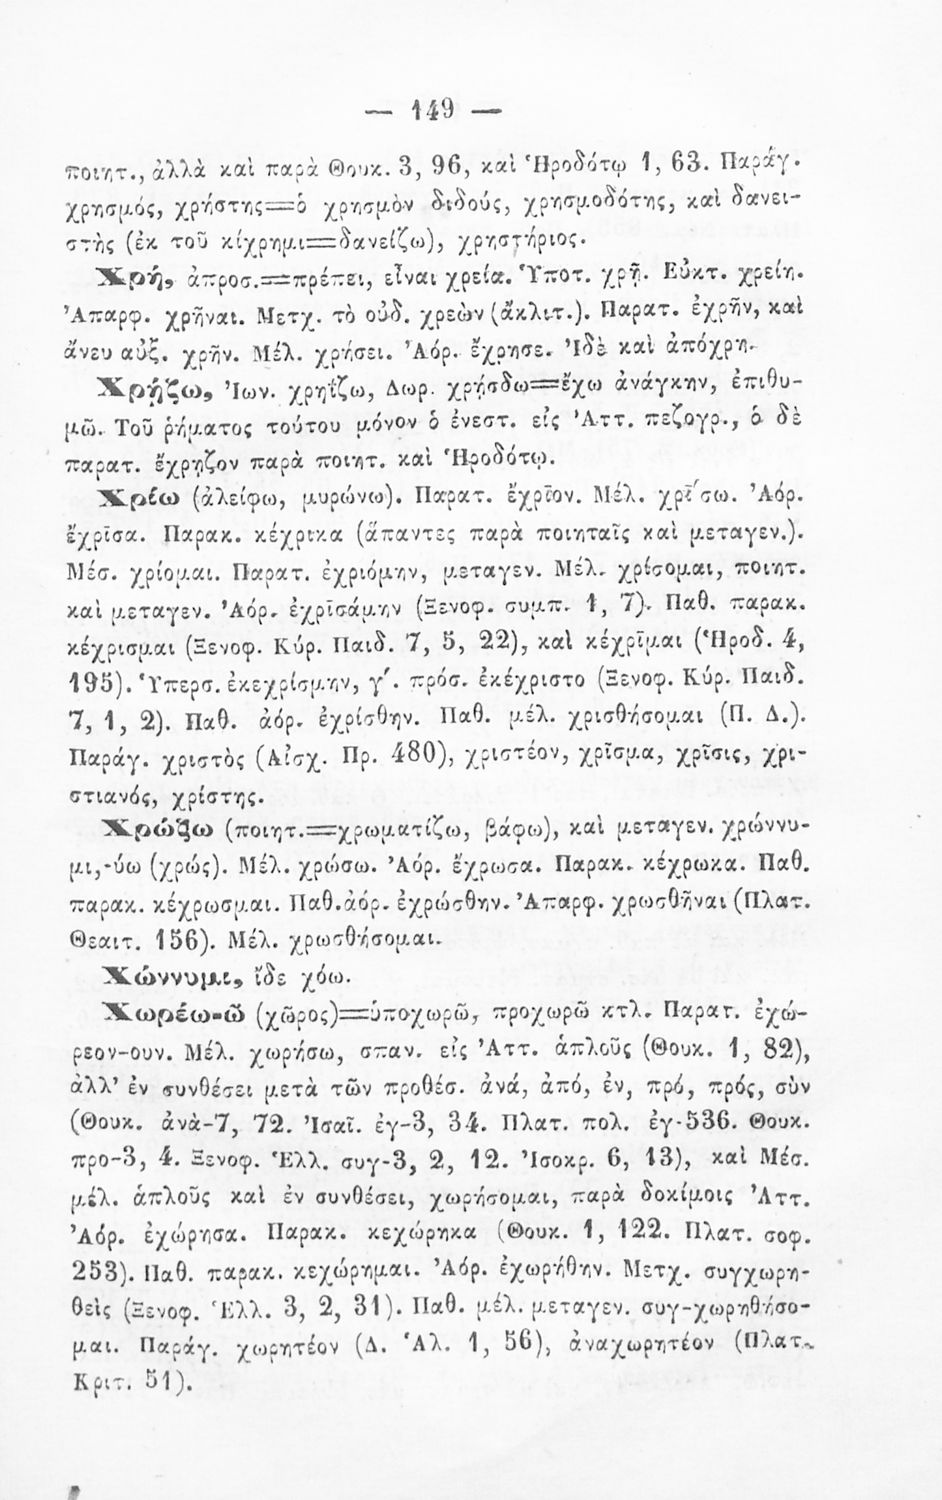 — 149 —
ποιητ., ἀλλὰ καὶ παρὰ Θουκ. 3, 96, καὶ Ἡροδότῳ 1, 63. Παράγ.
χρησμός, χρήστης=ὁ χρησμὸν διδούς, χρησμοδότης, καὶ δανει-
στὴς (ἐκ τοῦ κίχρημι=δανείζω), χρηστήριος.
Χρή, ἀπροσ.=πρέπει, εἶναι χρεία. Ὑποτ. χρῇ. Εὐκτ. χρείη.
Ἀπαρφ. χρῆναι. Μετχ. τὸ οὐδ. χρεὼν (ἄκλιτ.). Παρατ. ἐχρῆν, καὶ
ἄνευ αὐξ. χρῆν. Μέλ. χρήσει. Ἀόρ. ἔχρησε. Ἰδὲ καὶ ἀπόχρη.
Χρῄζω, Ἰων. χρηΐζω, Δωρ. χρῄσδω=ἔχω ἀνάγκην, ἐπιθυ-
μῶ. Τοῦ ῥήματος τούτου μόνον ὁ ἐνεστ. εἰς Ἀττ. πεζογρ., ὁ δὲ
παρατ. ἔχρῃζον παρὰ ποιητ. καὶ Ἡροδότῳ.
Χρίω (ἀλείφω, μυρώνω). Παρατ. ἔχρῑον. Μέλ. χρῑ́σω. Ἀόρ.
ἔχρῑσα. Παρακ. κέχρικα (ἅπαντες παρὰ ποιηταῖς καὶ μεταγεν.).
Μέσ. χρίομαι. Παρατ. ἐχριόμην, μεταγεν. Μέλ. χρίσομαι, ποιητ.
καὶ μεταγεν. Ἀόρ. ἐχρῑσάμην (Ξενοφ. συμπ. 1, 7). Παθ. παρακ.
κέχρισμαι (Ξενοφ. Κύρ. Παιδ. 7, 5, 22), καὶ κέχρῑμαι (Ἡροδ. 4,
195). Ὑπερσ. ἐκεχρίσμην, γ΄. πρόσ. ἐκέχριστο (Ξενοφ. Κύρ. Παιδ.
7, 1, 2). Παθ. ἀόρ. ἐχρίσθην. Παθ. μέλ. χρισθήσομαι (Π. Δ.).
Παράγ. χριστὸς (Αἰσχ. Πρ. 480), χριστέον, χρῖσμα, χρῖσις, χρι-
στιανός, χρίστης.
Χρώζω (ποιητ.=χρωματίζω, βάφω), καὶ μεταγεν. χρώννυ-
μι,-ύω (χρώς). Μέλ. χρώσω. Ἀόρ. ἔχρωσα. Παρακ. κέχρωκα. Παθ.
παρακ. κέχρωσμαι. Παθ.ἀόρ. ἐχρώσθην. Ἀπαρφ. χρωσθῆναι (Πλατ.
Θεαιτ. 156). Μέλ. χρωσθήσομαι.
Χώννυμι, ἴδε χόω.
Χωρέω-ῶ (χῶρος)=ὑποχωρῶ, προχωρῶ κτλ. Παρατ. ἐχώ-
ρεον-ουν. Μέλ. χωρήσω, σπαν. εἰς Ἀττ. ἁπλοῦς (Θουκ. 1, 82),
ἀλλ’ ἐν συνθέσει μετὰ τῶν προθέσ. ἀνά, ἀπό, ἐν, πρό, πρός, σὺν
(Θουκ. ἀνὰ-7, 72. Ἰσαῖ. ἐγ-3, 34. Πλατ. πολ. ἐγ-536. Θουκ.
προ-3, 4. Ξενοφ. Ἑλλ. συγ-3, 2, 12. Ἰσοκρ. 6, 13), καὶ Μέσ.
μέλ. ἁπλοῦς καὶ ἐν συνθέσει, χωρήσομαι, παρὰ δοκίμοις Ἀττ.
Ἀόρ. ἐχώρησα. Παρακ. κεχώρηκα (Θουκ. 1, 122. Πλατ. σοφ.
253). Παθ. παρακ. κεχώρημαι. Ἀόρ. ἐχωρήθην. Μετχ. συγχωρη-
θεὶς (Ξενοφ. Ἑλλ. 3, 2, 31). Παθ. μέλ. μεταγεν. συγ-χωρηθήσο-
μαι. Παράγ. χωρητέον (Δ. Ἁλ. 1, 56), ἀναχωρητέον (Πλατ.
Κριτ. 51).